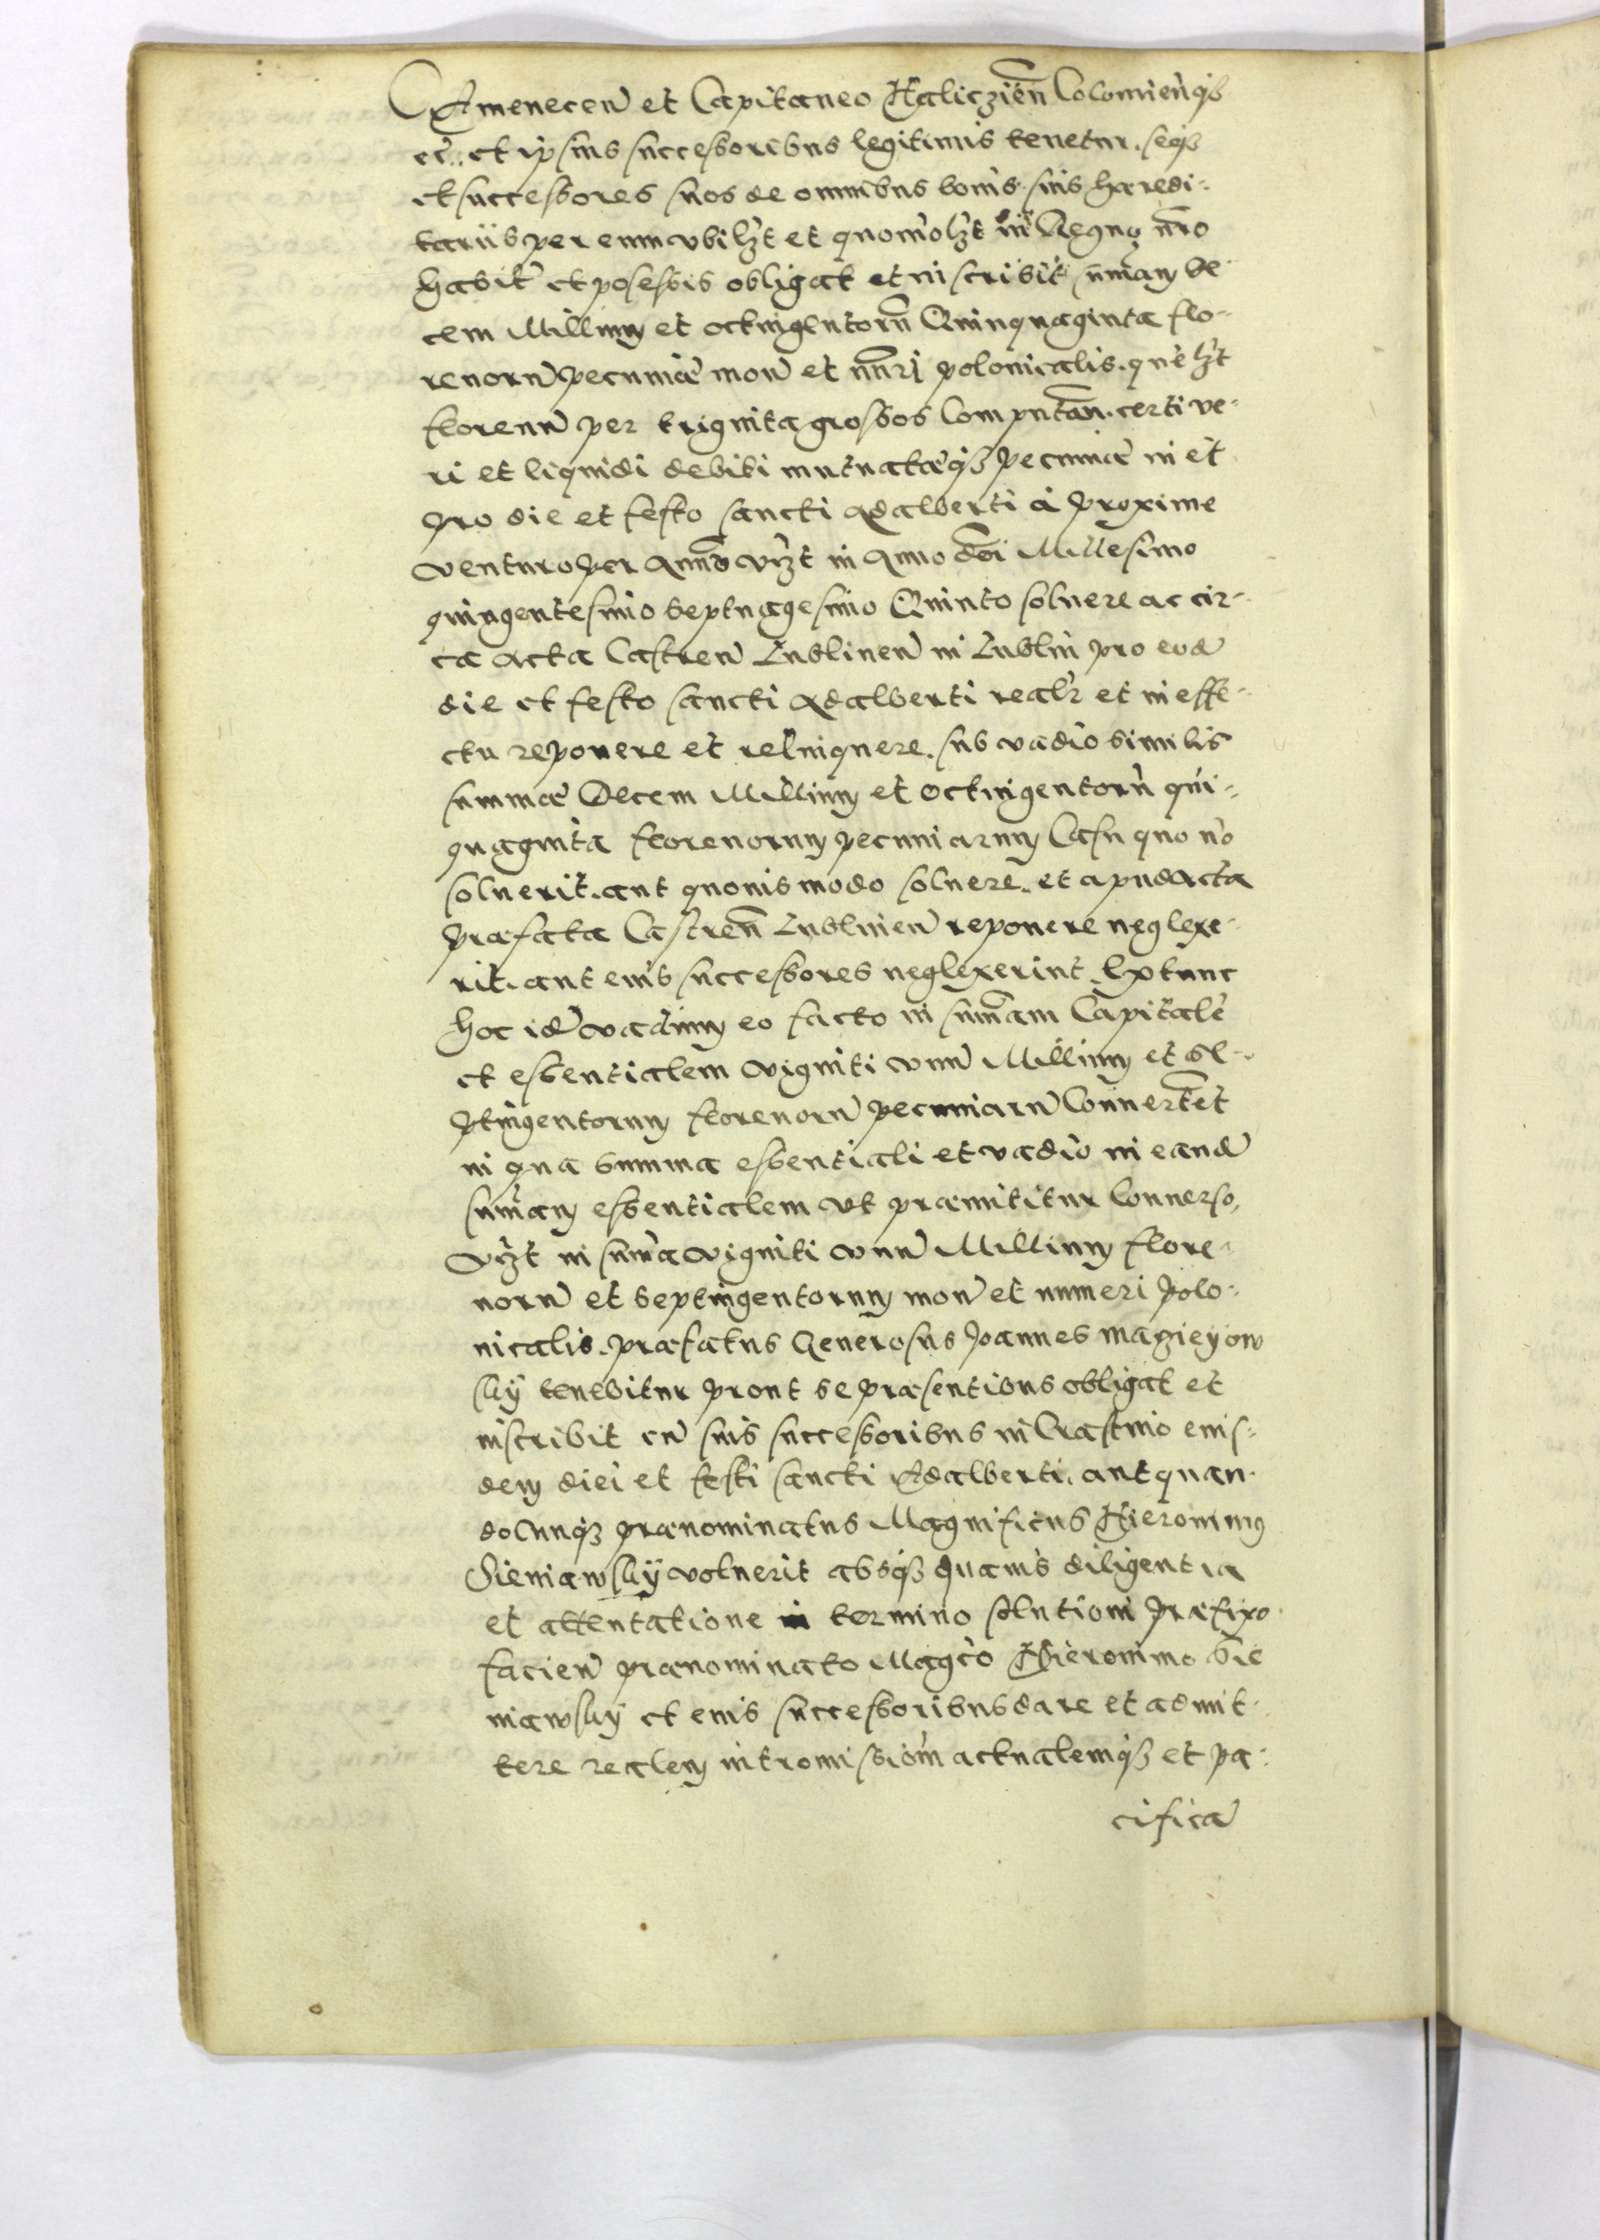 CAmenecen̄ et Capitaneo Haliczien̄ Colomien̄qȝ
et̄c. et ipsius successoribus legitimis tenetur. seqȝ
et successores suos de omnibus bonis suis haeredi-
tariis per eum vbilȝt et quomōlȝt in Regno nr̄o
habit̄ et posessis obligat et inscribit sum̄am de-
cem Millium et octingentorum̄ Quinquaginta flo-
renorum̄ pecuniae mon̄ et num̄ri polonicalis. quēlȝt
florenum̄ per triginta grossos Computan̄. certi ve-
ri et liquidi debiti mutuataeqȝ pecuniae in et
pro die et festo sancti Adalberti à proxime
venturo per Annum̄ vȝt in Anno dn̄i Millesimo
quingentesimo septuagesimo Quinto soluere ac cir-
ca acta Castren̄ Lublinen̄ in Lublin pro eod̄
die et festo sancti Adalberti realr̄ et in effe-
ctu reponere et relinquere. sub vadio similis
summae Decem Millium et Octingentorum̄ qui-
quaginta florenorum pecuniarum Casu quo nō
soluerit. aut quouis modo soluere. et apud acta
praefata Castren̄ Lublinen̄ reponere neglexe-
rit. aut eius successores neglexerint. Extunc
hoc id̄ vadium eo facto in sum̄am Capitalē
et essentialem viginti vnum̄ Millium et se-
ptingentorum florenorum̄ pecuniarum̄ Conuertet
in qua summa essentiali et vadio in eand̄
sum̄am essentialem vt praemittitur Conuerso,
vȝt in sum̄a viginti vnum̄ Millium flore-
norum̄ et septingentorum mon̄ et numeri polo-
nicalis. praefatus Generosus Joannes Macieyow
sky tenebitur prout se praesentibus obligat et
inscribit cum̄ suis successoribus in Crastino eius-
dem diei et festi sancti Adalberti. aut quan-
doCunqȝ praenominatus Magnificus Hieronimus
Sieniawsky voluerit absqȝ quauis diligentia
et attentatione in termino solutioni praefixo
facien̄ praenominato Maḡco Hieronimo Sie
niawsky et eius successoribus dare et admit-
tere realem intromissiōm actualemqȝ et pa-
cificā